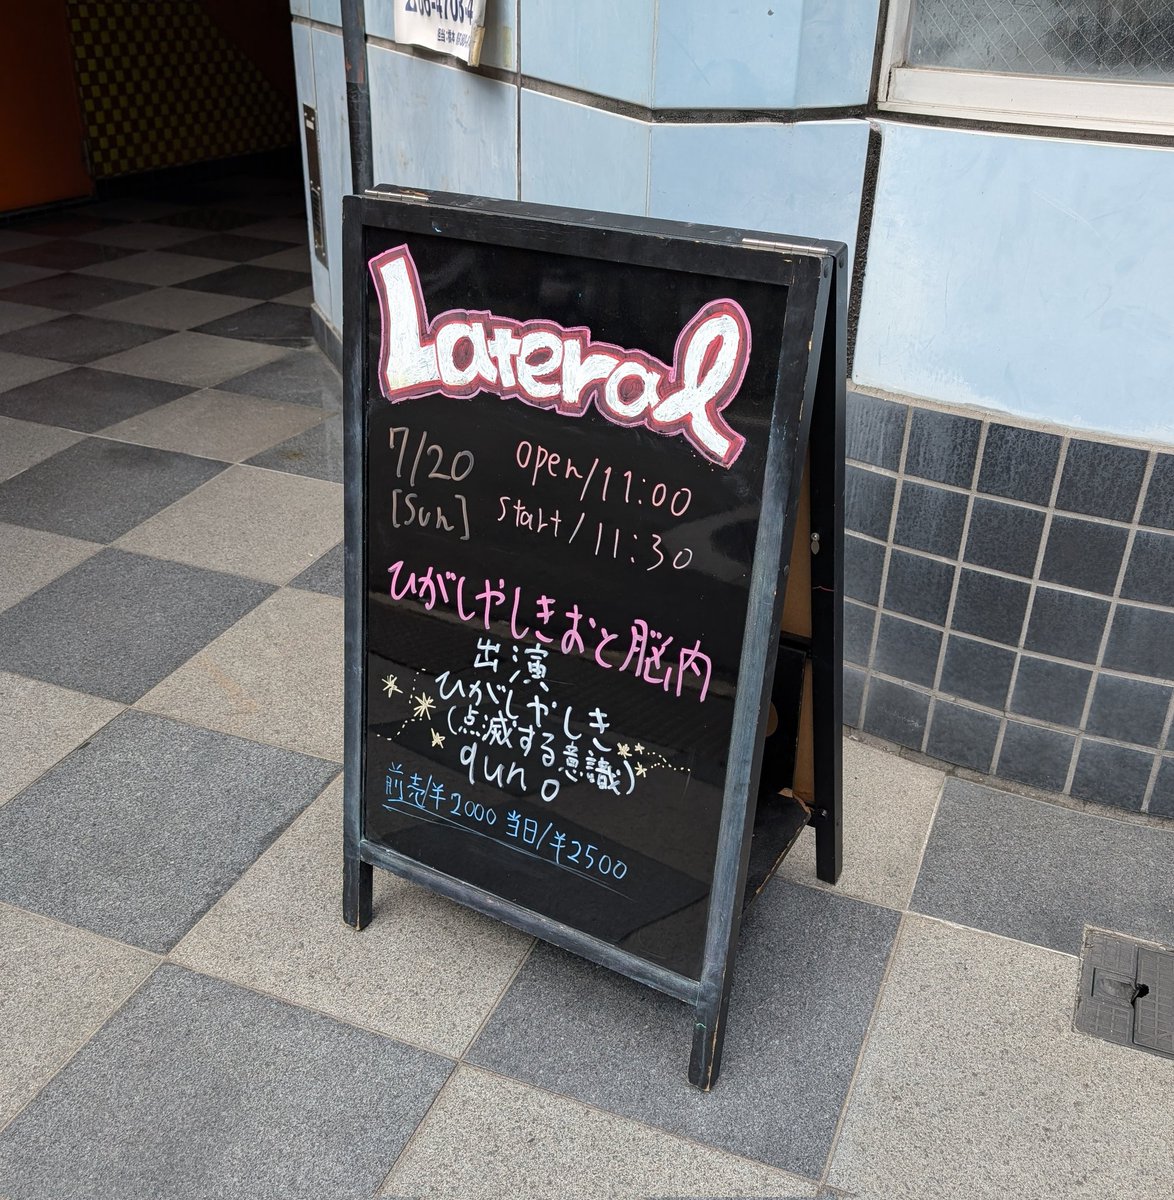 Lateral
7/20 open/11:00
[Sun] start/11:30
ひがしやしきおと脳内
出演
ひがしやしき
(点滅する意識)
quno
前売/¥2000 当日/¥2500